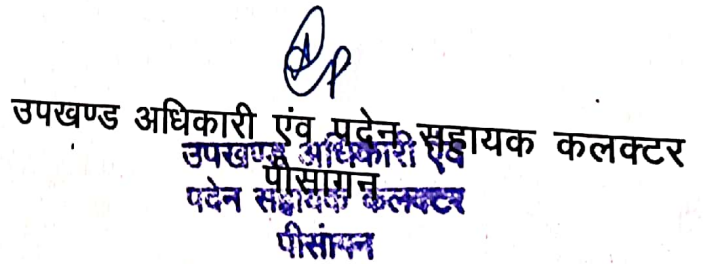 उपखण्ड अधिकारी एंव पदेन सहायक कलक्टर
पीसागंन
उपखण्ड अधिकारी एवं
पदेन सहायक कलक्टर
पीसांगन